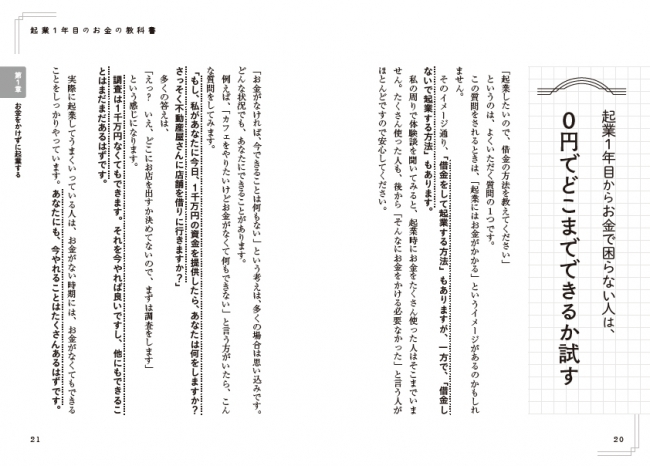 起業１年目のお金の教科書
起業１年目からお金で困らない人は、
０円でどこまでできるか試す
「起業したいので、借金の方法を教えてください」
というのは、よくいただく質問の１つです。
この質問をされるときは、「起業にはお金がかかる」というイメージがあるのかもしれ
ません。
そのイメージ通り、「借金をして起業する方法」もありますが、一方で、「借金し
ないで起業する方法」もあります。
私の周りで体験談を聞いてみると、起業時にお金をたくさん使った人はそこまでいま
せん。たくさん使った人も、後から「そんなにお金をかける必要なかった」と言う人が
ほとんどですので安心してください。
20
「お金がなければ、今できることは何もない」という考えは、多くの場合は思い込みです。
どんな状況でも、あなたにできることがあります。
例えば、「カフェをやりたいけどお金がなくて何もできない」と言う方がいたら、こん
な質問をしてみます。
「もし、私があなたに今日、１千万円の資金を提供したら、あなたは何をしますか？
さっそく不動産屋さんに店舗を借りに行きますか？」
多くの答えは、
「えっ？　いえ、どこにお店を出すか決めてないので、まずは調査をします」
という感じになります。
調査は１千万円なくてもできます。それを今やれば良いですし、他にもできるこ
とはまだまだあるはずです。
実際に起業してうまくいっている人は、お金がない時期には、お金がなくてもできる
ことをしっかりやっています。あなたにも、今やれることはたくさんあるはずです。
第１章
お金をかけずに起業する
21